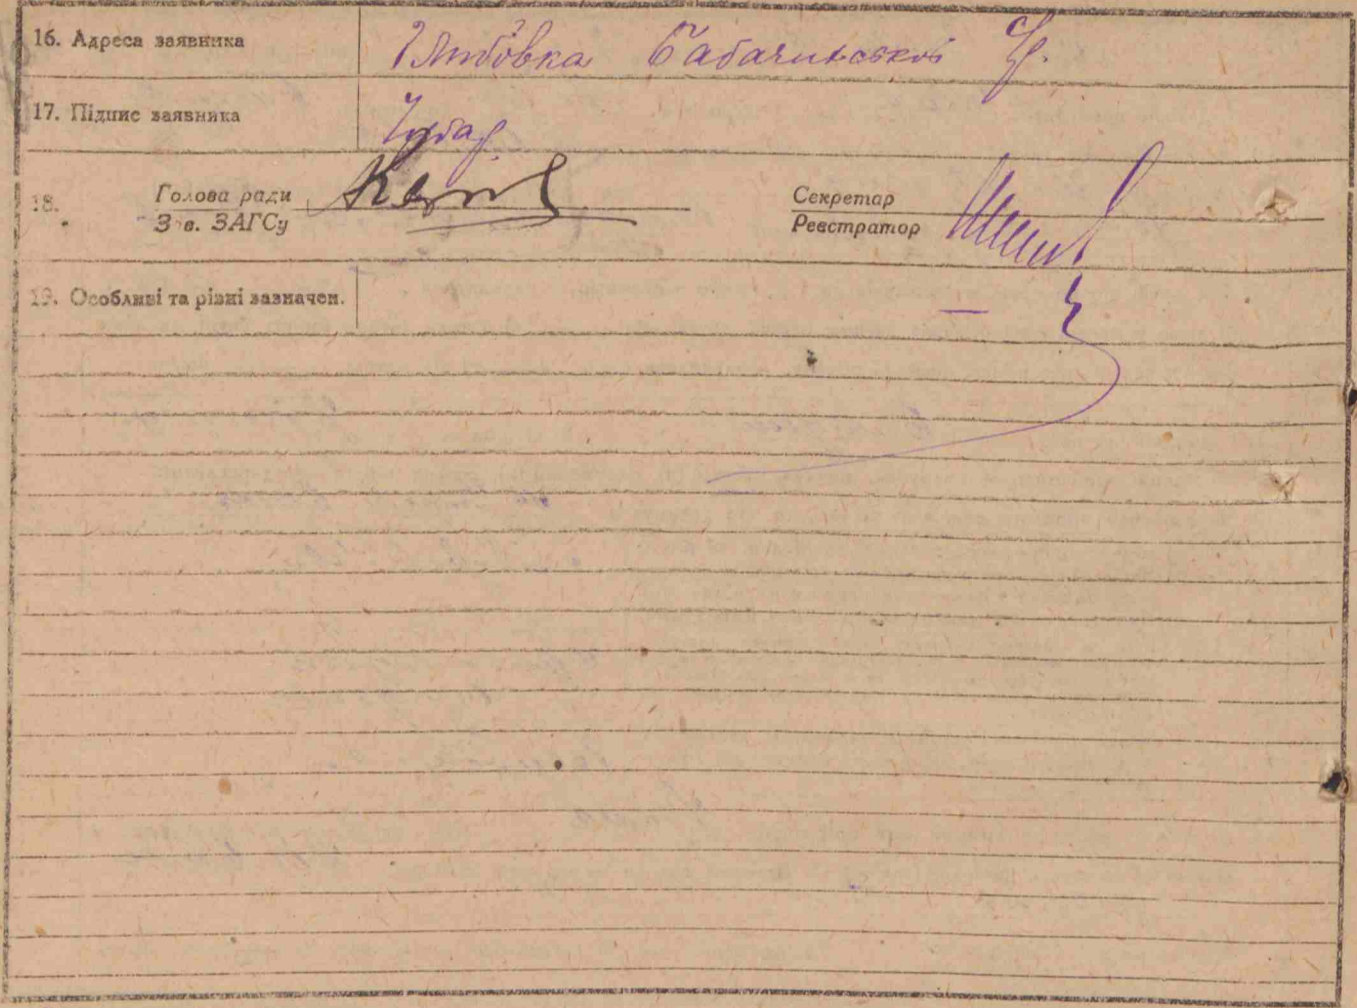 16. Адреса заявника Бабачинської с/р.
17. Підпис заявника Чубар
18. Голова ради Секретар
Зав. ЗАГСу Реєстратор
19. Особливі та різні зазначен. —